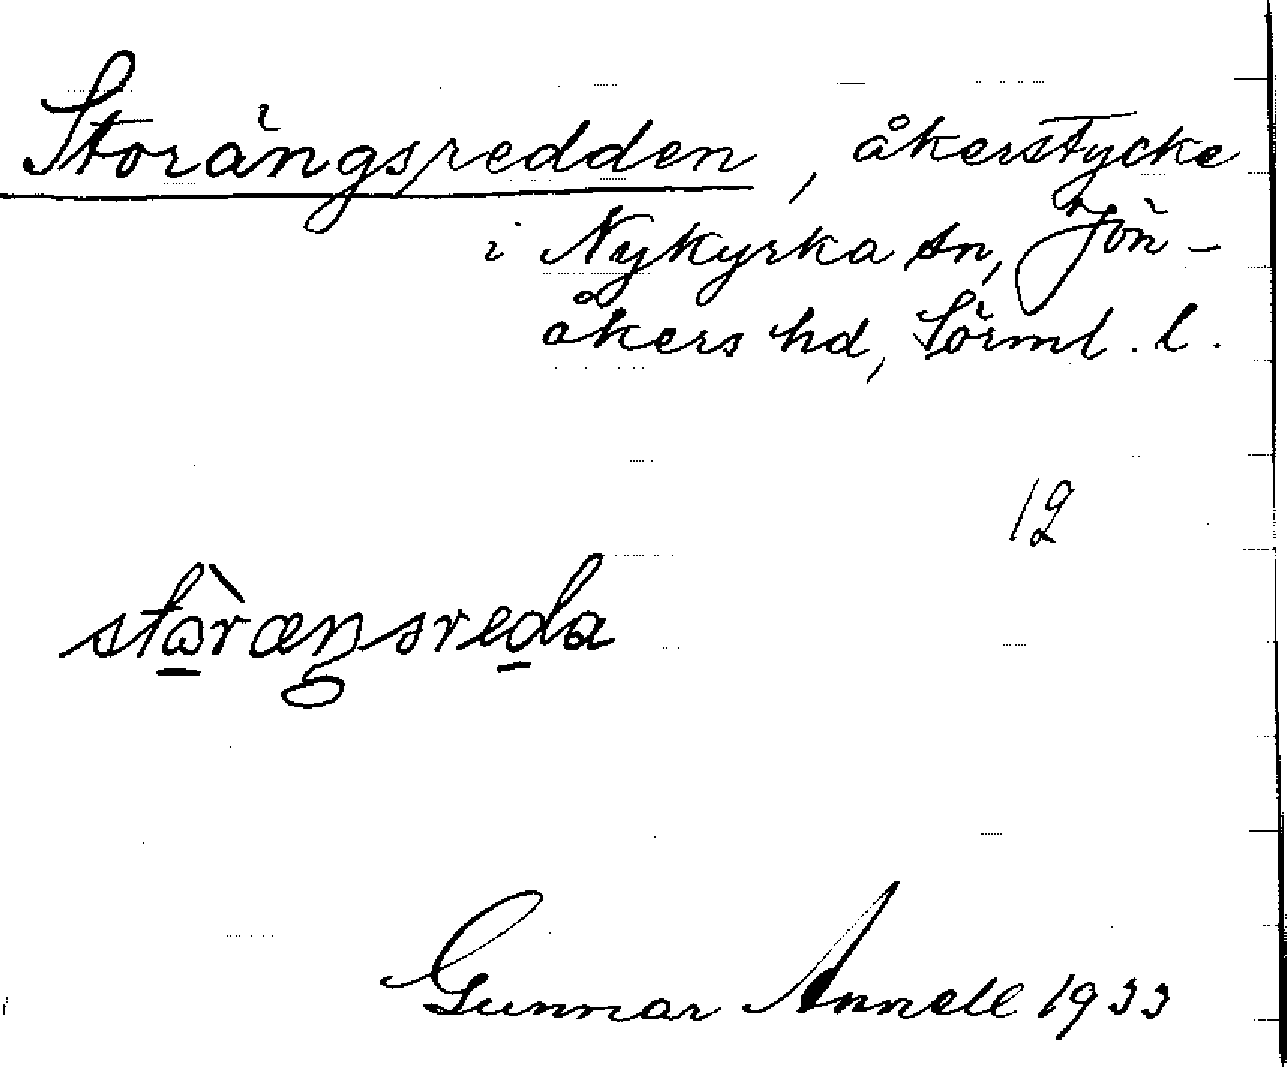 Storängsredden, åkerstycke
i Nykyrka sn, Jön-
åkers hd, Sörml. l.
12
stωràŋsreda
Gunnar Annell 1933